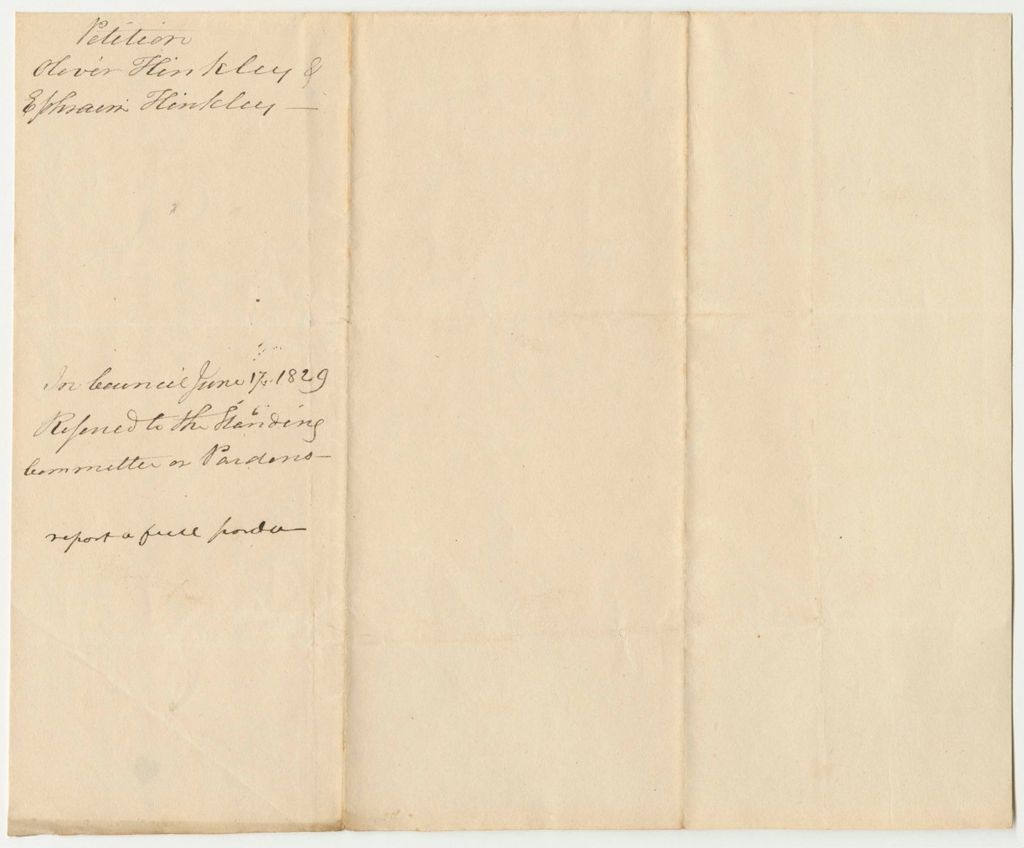 Petition
Oliver Hinkley &
Ephraim Hinkley —
In Council June 17, 1829
Referred to the Standing
Committee on Pardons —
report a full pardon